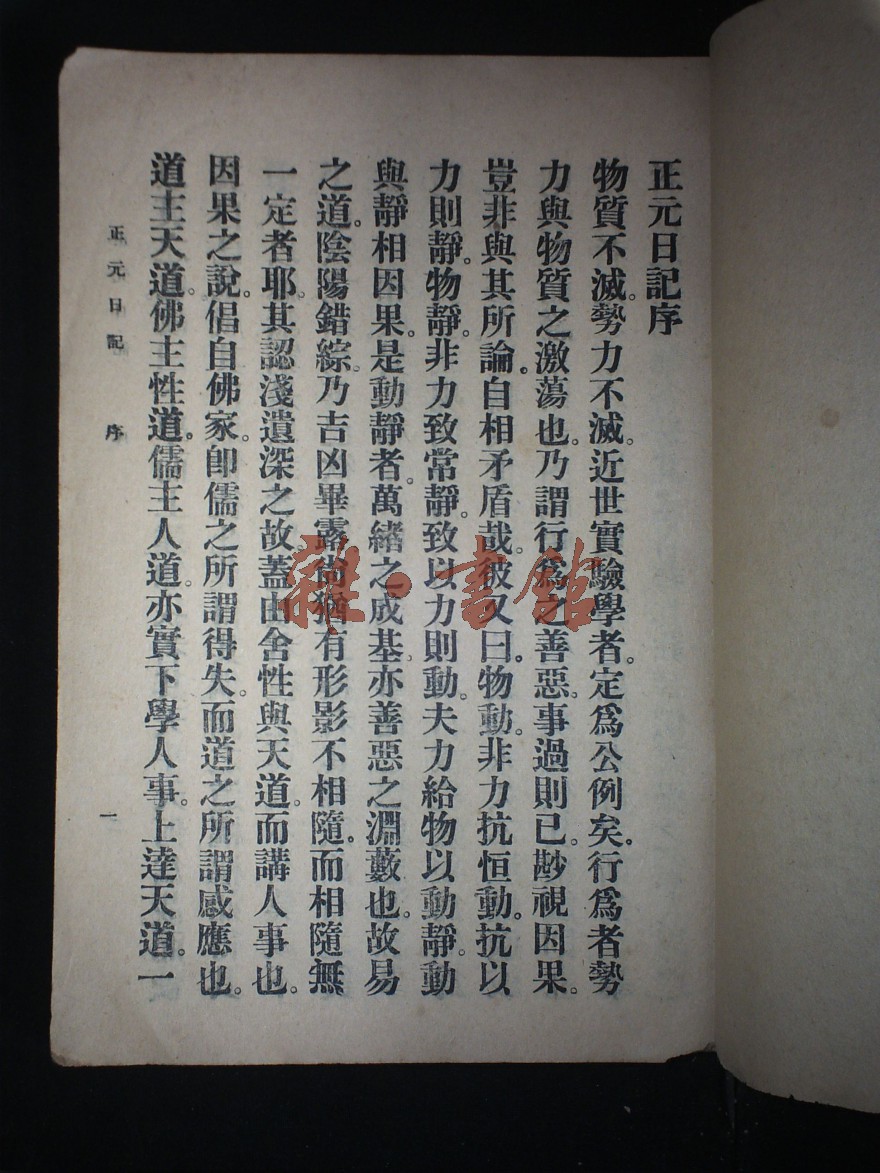 正元日記序
物質不滅。勢力不滅。近世實驗學者。定爲公例矣。行爲者勢
力與物質之激蕩也。乃謂行爲之善惡。事過則已。尠視因果。
豈非與其所論。自相矛盾哉。彼又曰。物動。非力抗恒動。抗以
力則靜。物靜。非力致常靜。致以力則動。夫力給物以動靜。動
與靜相因果。是動靜者。萬緒之成基。亦善惡之淵藪也。故易
之道。陰陽錯綜。乃吉凶畢露。尚猶有形影不相隨。而相隨無
一定者耶。其認淺遺深之故。蓋由舍性與天道。而講人事也。
因果之說。倡自佛家。卽儒之所謂得失。而道之所謂感應也。
道主天道。佛主性道。儒主人道。亦實下學人事。上達天道。一
正元日記 序 一
雜·書館